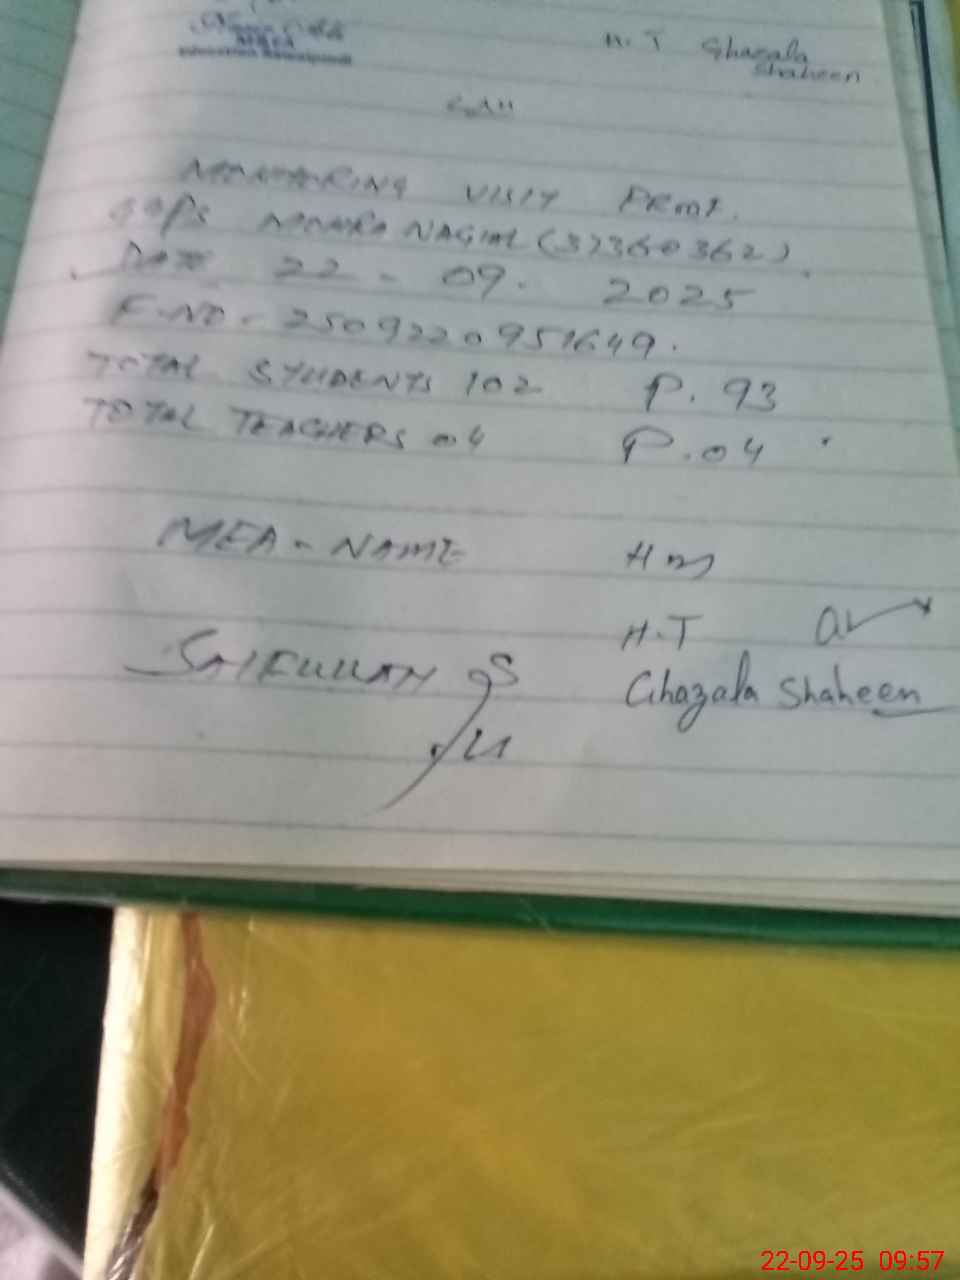 H.T Ghazala
Shaheen
MONITORING VISIT PRMI.
GGPS MOHRA NAGIAL (37360362)
DATE 22-09. 2025
F.NO- 2509220951649.
TOTAL STUDENTS 102 P. 93
TOTAL TEACHERS 04 P. 04
MEA-NAME HM
H.T
SAIFULLAH Ghazala Shaheen
22-09-25 09:57